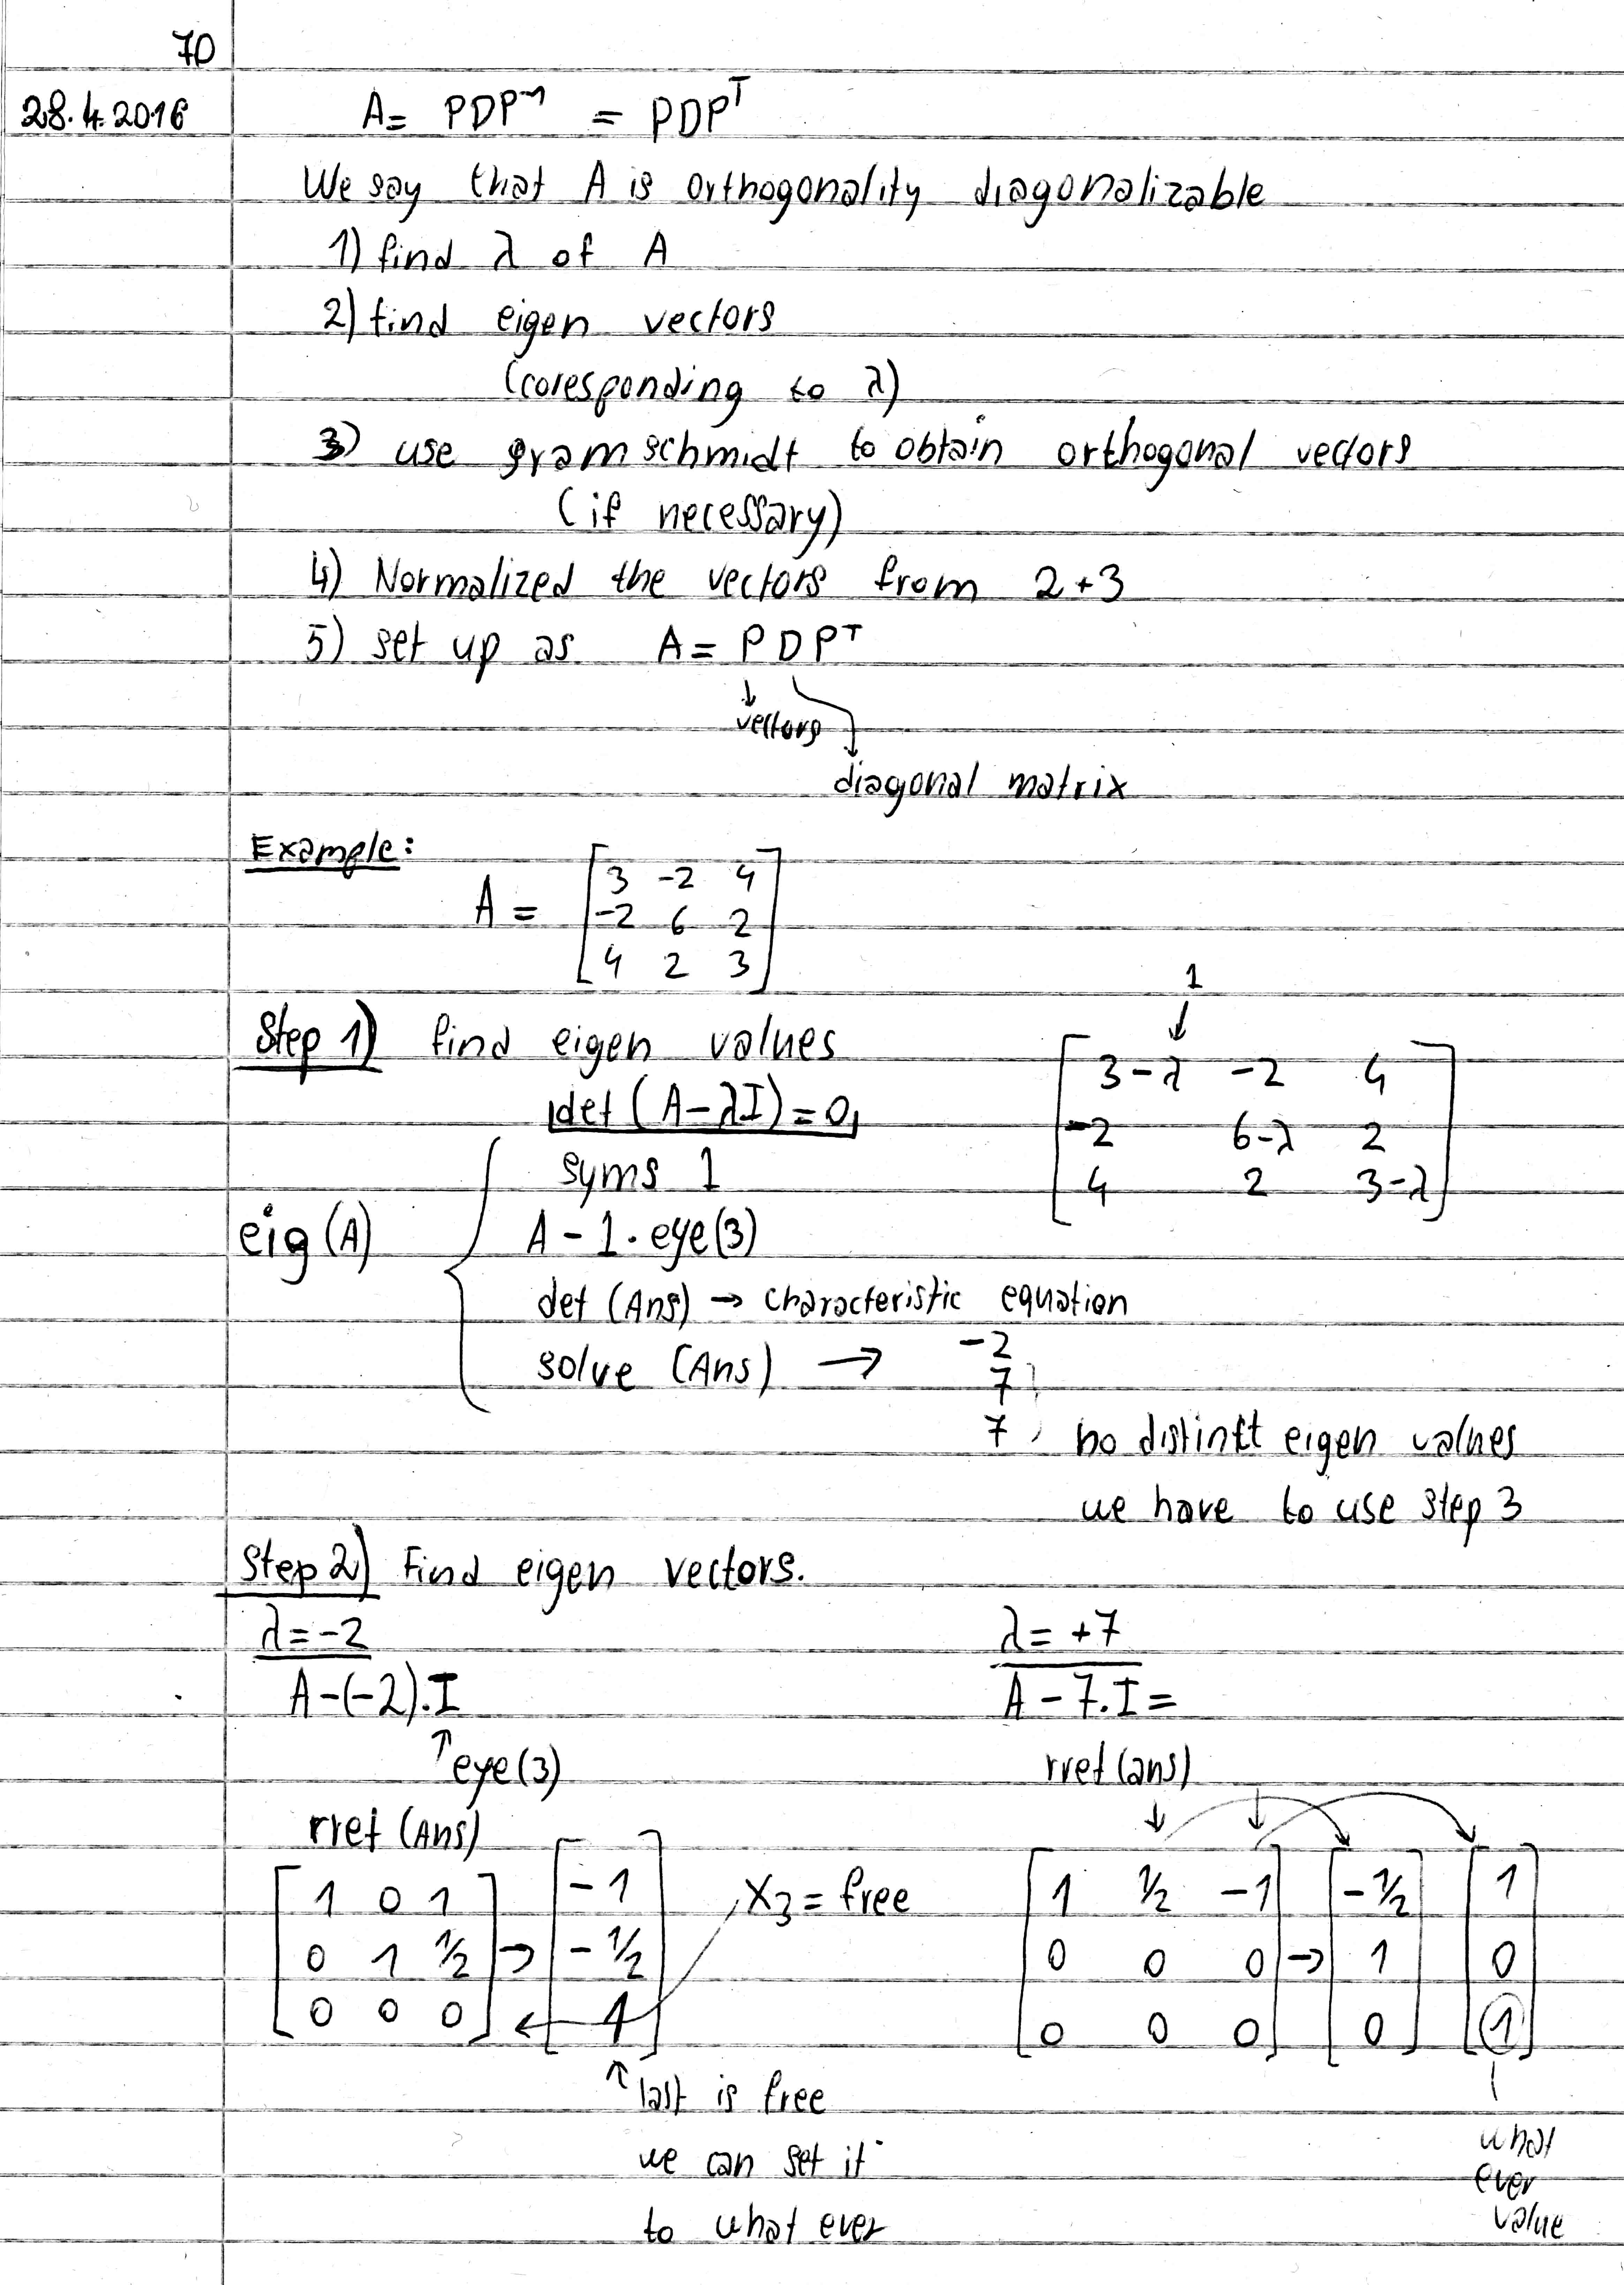 70
28.4.2016
A= PDP⁻¹ = PDPᵀ
We say that A is orthogonality diagonalizable
1) find λ of A
2) find eigen vectors
(coresponding to λ)
3) use gram schmidt to obtain orthogonal vectors
(if necessary)
4) Normalized the vectors from 2+3
5) set up as A = P D Pᵀ
↓ vectors
diagonal matrix
Example:
A = [3 -2 4
-2 6 2
4 2 3]
Step 1) find eigen values
det (A-λI) = 0
1
↓
[3-λ -2 4
-2 6-λ 2
4 2 3-λ]
eig (A)
syms 1
A - 1 · eye(3)
det (Ans) → characteristic equation
solve (Ans) → -2
7
7 no distinct eigen values
we have to use step 3
Step 2) Find eigen vectors.
λ = -2
A-(-2).I
↑ eye(3)
rref (Ans)
[1 0 1
0 1 1/2
0 0 0] → [-1
-1/2
1]
x₃ = free
↑ last is free
we can set it
to what ever
λ = +7
A - 7.I =
rref (ans)
[1 1/2 -1
0 0 0
0 0 0] → [-1/2
1
0] [1
0
1]
what
ever
value